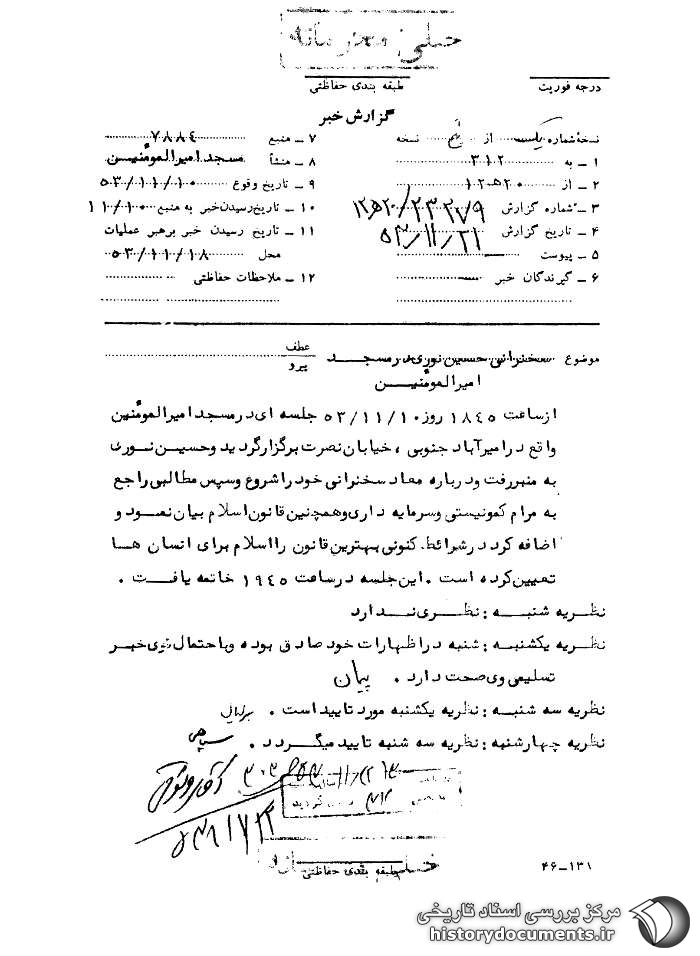 خیلی محرمانه
درجه فوریت
طبقه بندی حفاظتی
گزارش خبر
نسخه شماره یک از پنج نسخه
۱ ـ به ۳۱۲
۲ ـ از ۲۰ ه ۱۲
۳ ـ شماره گزارش ۲۳۲۷۹/۲۰ ه ۱۲
۴ ـ تاریخ گزارش ۵۳/۱۱/۲۱
۵ ـ پیوست
۶ ـ گیرندگان خبر
۷ ـ منبع ۷۸۸۴
۸ ـ منشأ مسجد امیرالمومنین
۹ ـ تاریخ وقوع ۵۳/۱۱/۱۰
۱۰ ـ تاریخ رسیدن خبر به منبع ۱۱/۱۰
۱۱ ـ تاریخ رسیدن خبر برهبر عملیات
محل ۵۳/۱۱/۱۸
۱۲ ـ ملاحظات حفاظتی
موضوع سخنرانی حسین نوری در مسجد
عطف
پیرو
امیرالمومنین
از ساعت ۱۸۴۵ روز ۵۳/۱۱/۱۰ جلسه ای در مسجد امیرالمومنین
واقع در امیرآباد جنوبی ، خیابان نصرت برگزار گردید و حسین نوری
به منبر رفت و درباره معاد سخنرانی خود را شروع و سپس مطالبی راجع
به مرام کمونیستی و سرمایه داری و همچنین قانون اسلام بیان نمود و
اضافه کرد در شرائط کنونی بهترین قانون را اسلام برای انسان ها
تعیین کرده است . این جلسه در ساعت ۱۹۴۵ خاتمه یافت .
نظریه شنبه : نظری ندارد
نظریه یکشنبه : شنبه در اظهارات خود صادق بوده و باحتمال قوی خبر
تسلیمی وی صحت دارد . پیمان
نظریه سه شنبه : نظریه یکشنبه مورد تایید است .
نظریه چهارشنبه : نظریه سه شنبه تایید میگردد . سپاهی
طبقه بندی حفاظتی
۴۶-۱۳۱
مرکز بررسی اسناد تاریخی
historydocuments.ir